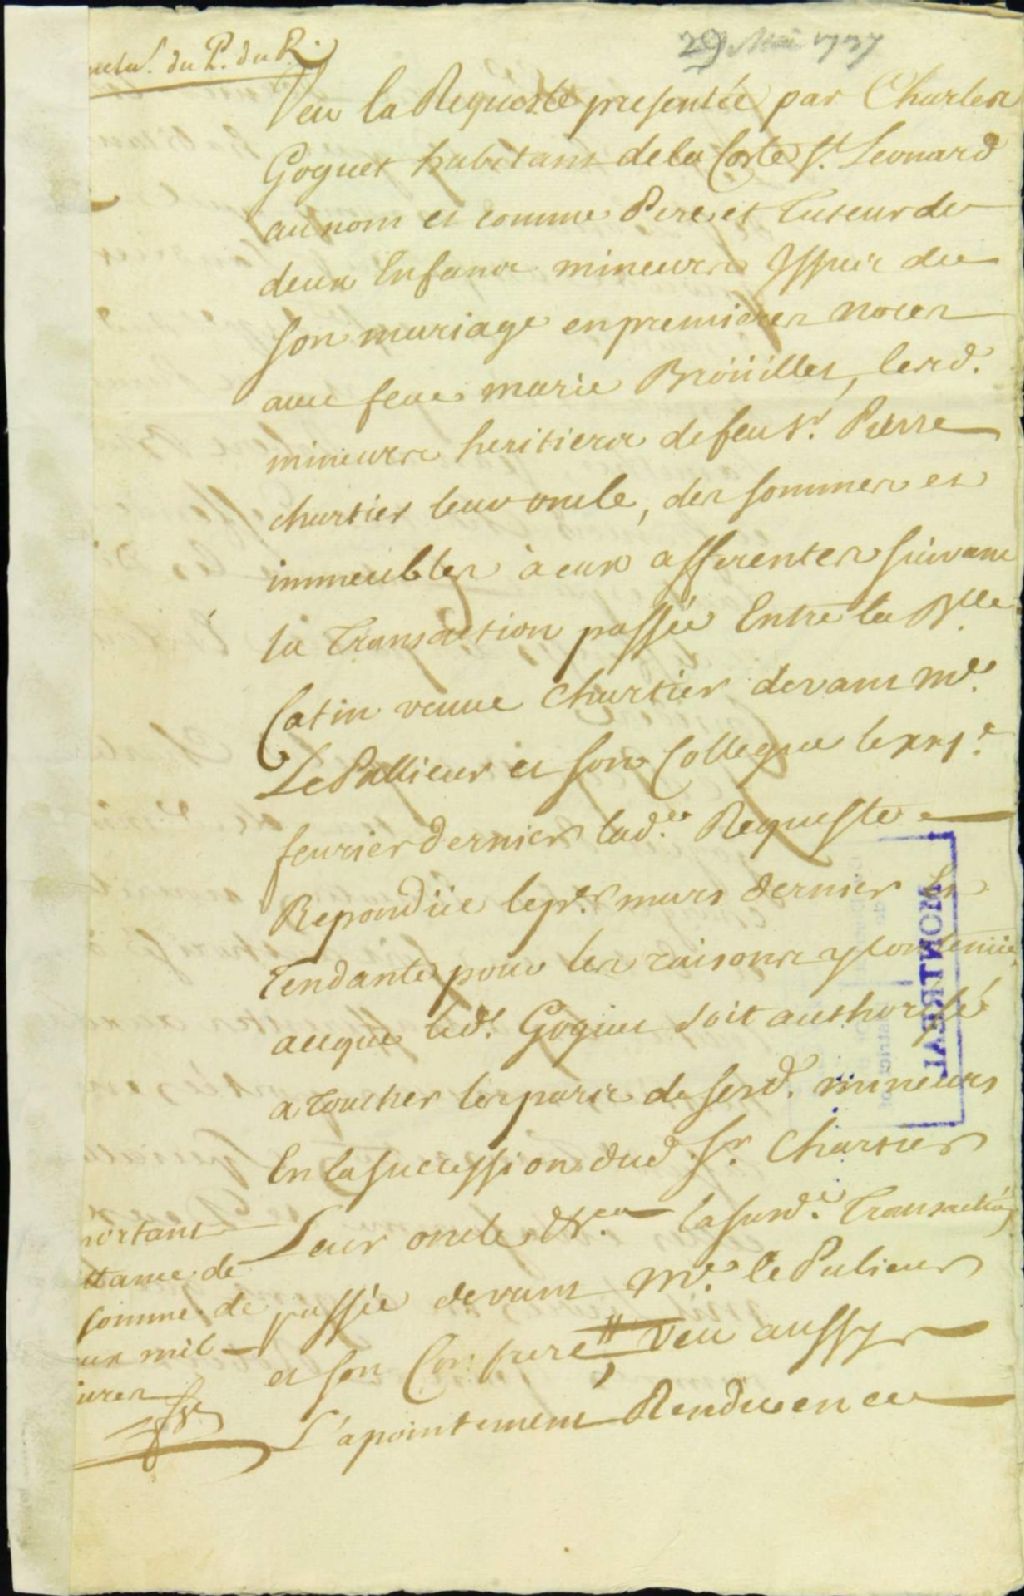 29 Mai 1737
du P. du R.
Veu la Requeste presentée par Charles
Goguet habitant de la Coste St. Leonard
au nom et comme Pere et Tuteur de
deux Enfans mineurs Issus de
son mariage en premieres noces
avec feue marie Broüillet, lesd.
mineurs heritiers de feu Sr. Pierre
chartier leur oncle, des sommes et
immeubles à eux afferentes suivant
la Transaction passée Entre la Dlle
Catin veuve Chartier devant Me.
LePallieur et son Collegue le
feuvrier dernier lad.te Requeste
Repondüe le pr. mars dernier Et
Tendante pour les raisons y Contenües
aceque led. Goguet soit authorisé
a Toucher les parts de sesd. mineurs
En la succession dud Sr. Chartier
Leur oncle, la susd.e Transaction
passée devant Me. le Palieur
et son Confrere # Veu aussy
L'apointement Rendu en ce
portant
quittance de
somme de
mil
livres
MONTREAL